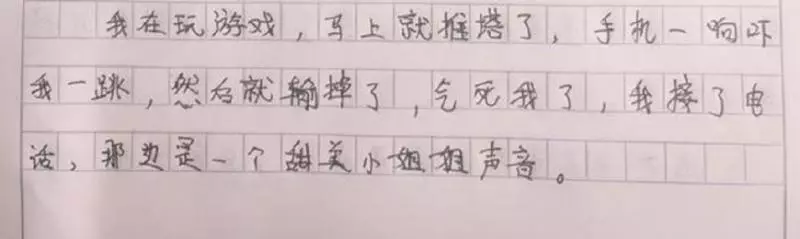 我在玩游戏，马上就推塔了，手机一响吓
我一跳，然后就输掉了，气死我了，我接了电
话，那边是一个甜美小姐姐声音。